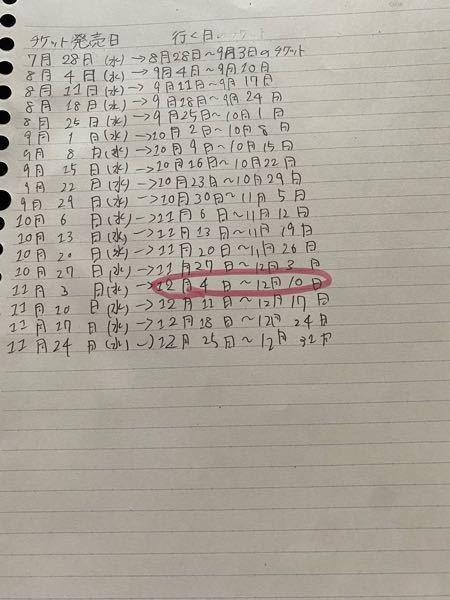 チケット発売日 行く日
7月28日(水)→8月28日~9月3日のチケット
8月4日(水)→9月4日~9月10日
8月11日(水)→9月11日~9月17日
8月18日(水)→9月18日~9月24日
8月25日(水)→9月25日~10月1日
9月1日(水)→10月2日~10月8日
9月8日(水)→10月9日~10月15日
9月15日(水)→10月16日~10月22日
9月22日(水)→10月23日~10月29日
9月29日(水)→10月30日~11月5日
10月6日(水)→11月6日~11月12日
10月13日(水)→11月13日~11月19日
10月20日(水)→11月20日~11月26日
10月27日(水)→11月27日~12月3日
11月3日(水)→12月4日~12月10日
11月10日(水)→12月11日~12月17日
11月17日(水)→12月18日~12月24日
11月24日(水)→12月25日~12月31日